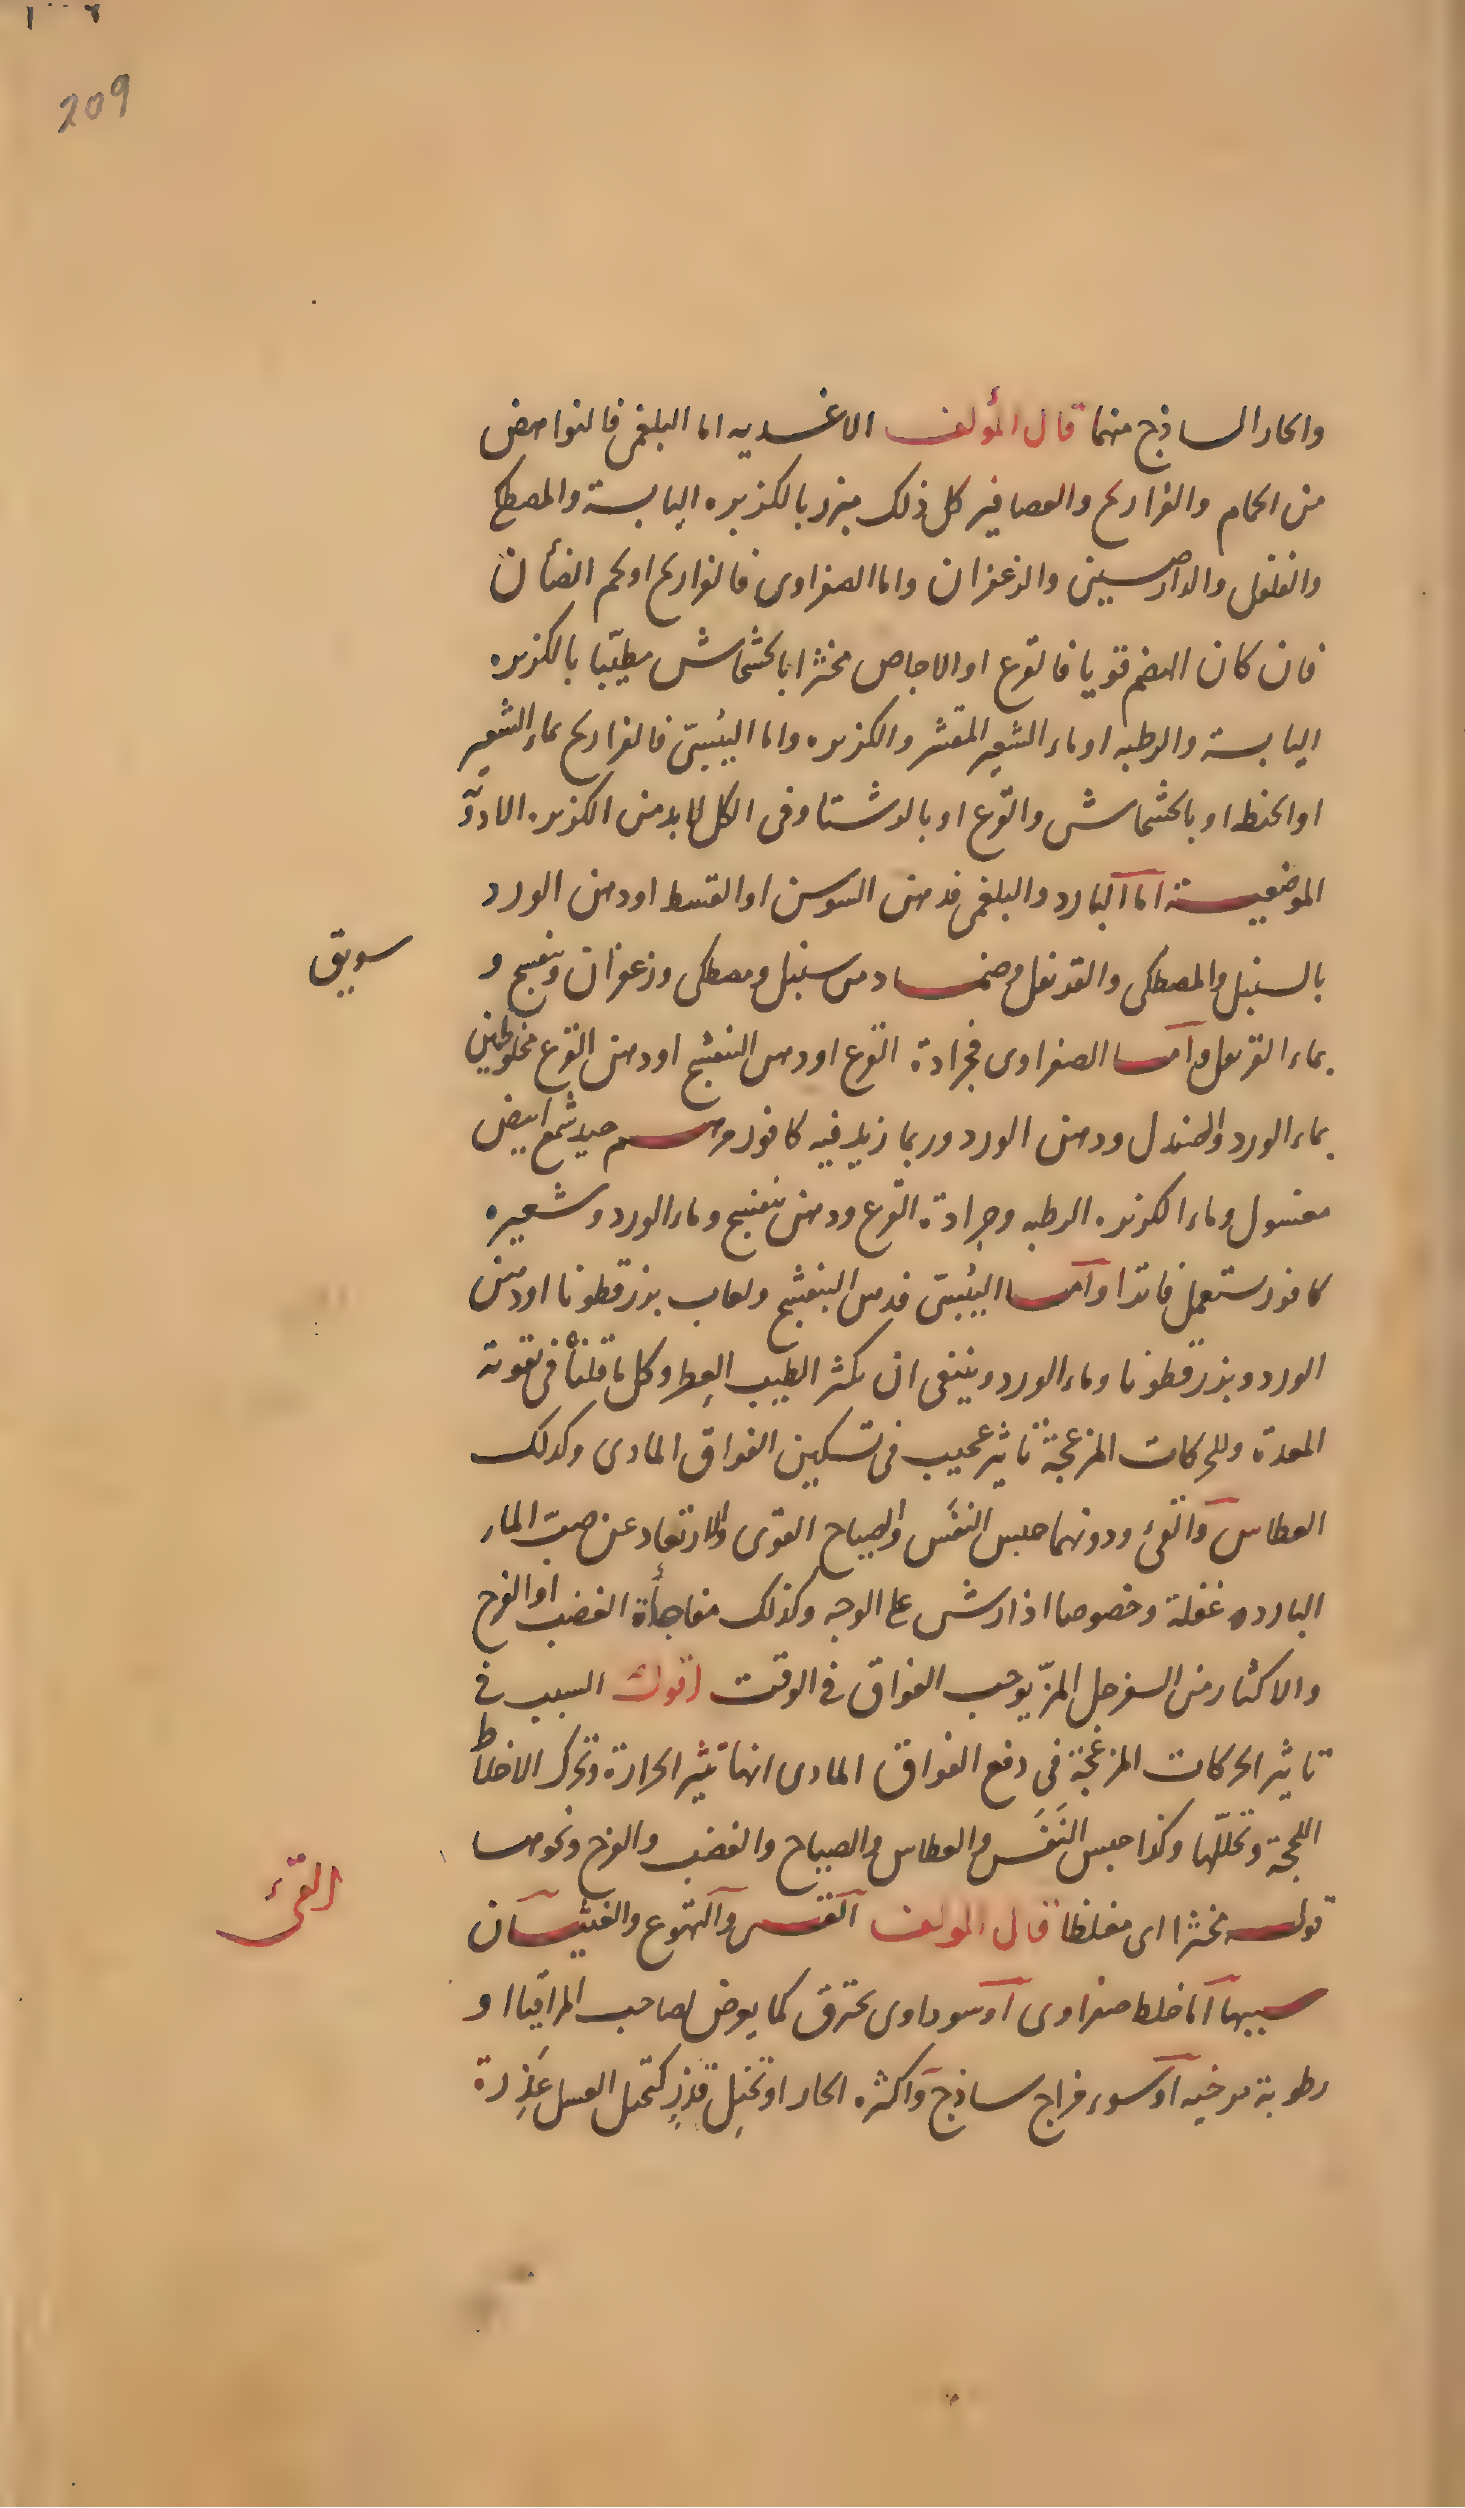 209
والحار الساذج منهما قال المؤلف الاغديه اما البلغمى فالنواهض
من الحمام والفراريج والعصافير كل ذلك مبزر بالكزبره اليابسة والمصطكى
والفلفل والدارصينى والزعفران واما الصفراوى فالفراريج او لحم الضأن
فان كان الهضم قويا فالقرع او الاجاص مخثرا بالخشخاش مطيّبا بالكزبره
اليابسة والرطبه او ماء الشعير المقشر والكزبره واما اليُبسىّ فالفراريج بماء الشعير
او الحنطه او بالخشخاش والقرع او بالرشتا وفى الكل لا بد من الكزبره الادوية
الموضعيسة اما البارد والبلغمى فدهن السوسن او القسط او دهن الورد
بالسنبل والمصطكى والقرنفل وضماد من سنبل ومصطكى وزعفران وبنفسج و
سويق
بماء القرنفل واما الصفراوى فجرادة القرع او دهن البنفسج او دهن القرع مخلوطين
بماء الورد والصندل ودهن الورد وربما زيد فيه كافور مرهم جيد شمع ابيض
مغسول وماء الكزبره الرطبه وجرادة القرع ودهن بنفسج وماء الورد وشعيره
كافور يستعمل فاترا واما اليُبسىّ فدهن البنفسج ولعاب بزرقطونا او دهن
الورد وبزرقطونا وماء الورد وينبغى ان يكثر الطبيب العِطر وكل ما قلناه فى تقوية
المعدة وللحركات المزعجة تاثير عجيب فى تسكين الفواق المادى وكدلك
العطاس والقىء ودونهما حبس النفَس والصياح القوى والارتعاد عن صبّ الماء
البارده غفلة وخصوصا اذا رش على الوجه وكذلك مفاجأة الغضب او الفرح
والاكثار من السفرجل المزّ يوجب الفواق فى الوقت اقول السبب فى
تاثير الحركات المزعجة فى دفع الفواق المادى انها تثير الحرارة وتحرك الاخلاط
اللحجة وتحللها وكذا حبس النَفَس والعطاس والصياح والغضب والفرح ونحوها
قوله مخثرا اى مغلظا قال المولف القىء والتهوع والغثيان
القىء
سببها اما خلط صفراوى او سوداوى يحترق كما يعرض لصاحب المراقيا او
رطوبة مرخيه او سوء مزاج ساذج واكثره الحار او تخيل قذِرٍ كتخيل العسل عَذِرة